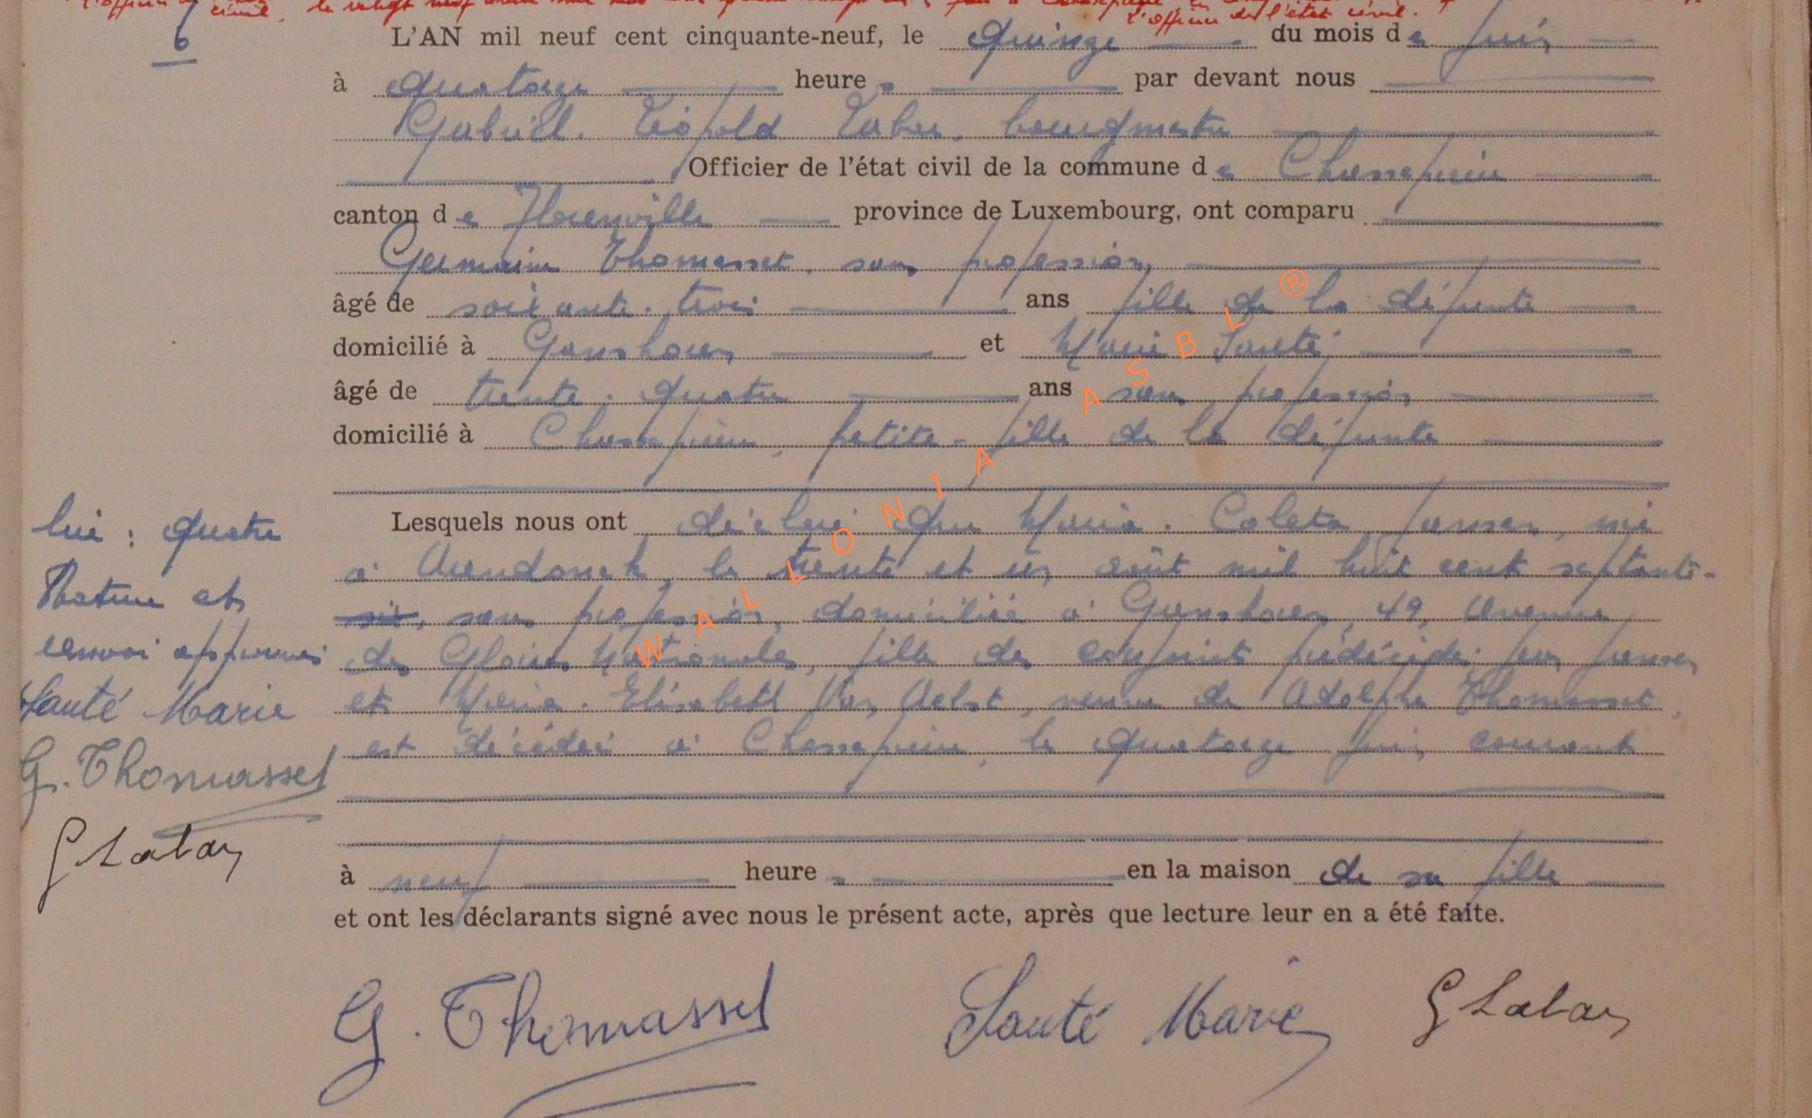 l'officier
civil, le vingt neuf
l'officier de l'état civil.
6
L'AN mil neuf cent cinquante-neuf, le quinze du mois de juin
à quatorze heures par devant nous
Gabriel. Léopold bourgmestre
Officier de l'état civil de la commune de Chassepierre
canton de Florenville province de Luxembourg, ont comparu
Germaine Thomasset, sans profession,
âgé de soixante. trois ans fille de la défunte
domicilié à Ganshoren et Marie Sauté,
âgé de trente. quatre ans sans profession
domicilié à Chassepierre, petite-fille de la défunte
Lesquels nous ont déclaré que Maria. Coleta Jansen, née
à Arendonck, le trente et un août mil huit cent septante-
six, sans profession, domiciliée à Ganshoren, 49, Avenue
des Gloires Nationales, fille des conjoints prédécédés Jansen
et Maria. Elisabeth Van Aelst, veuve de Adolphe Thomasset,
est décédée à Chassepierre, le quatorze juin courant
à neuf heures en la maison de sa fille
et ont les déclarants signé avec nous le présent acte, après que lecture leur en a été faite.
lui : quatre
Rature et
renvoi approuvés
Sauté Marie
G. Thomasset
G. Thomasset Sauté Marie
WALLONIA ASBL ®